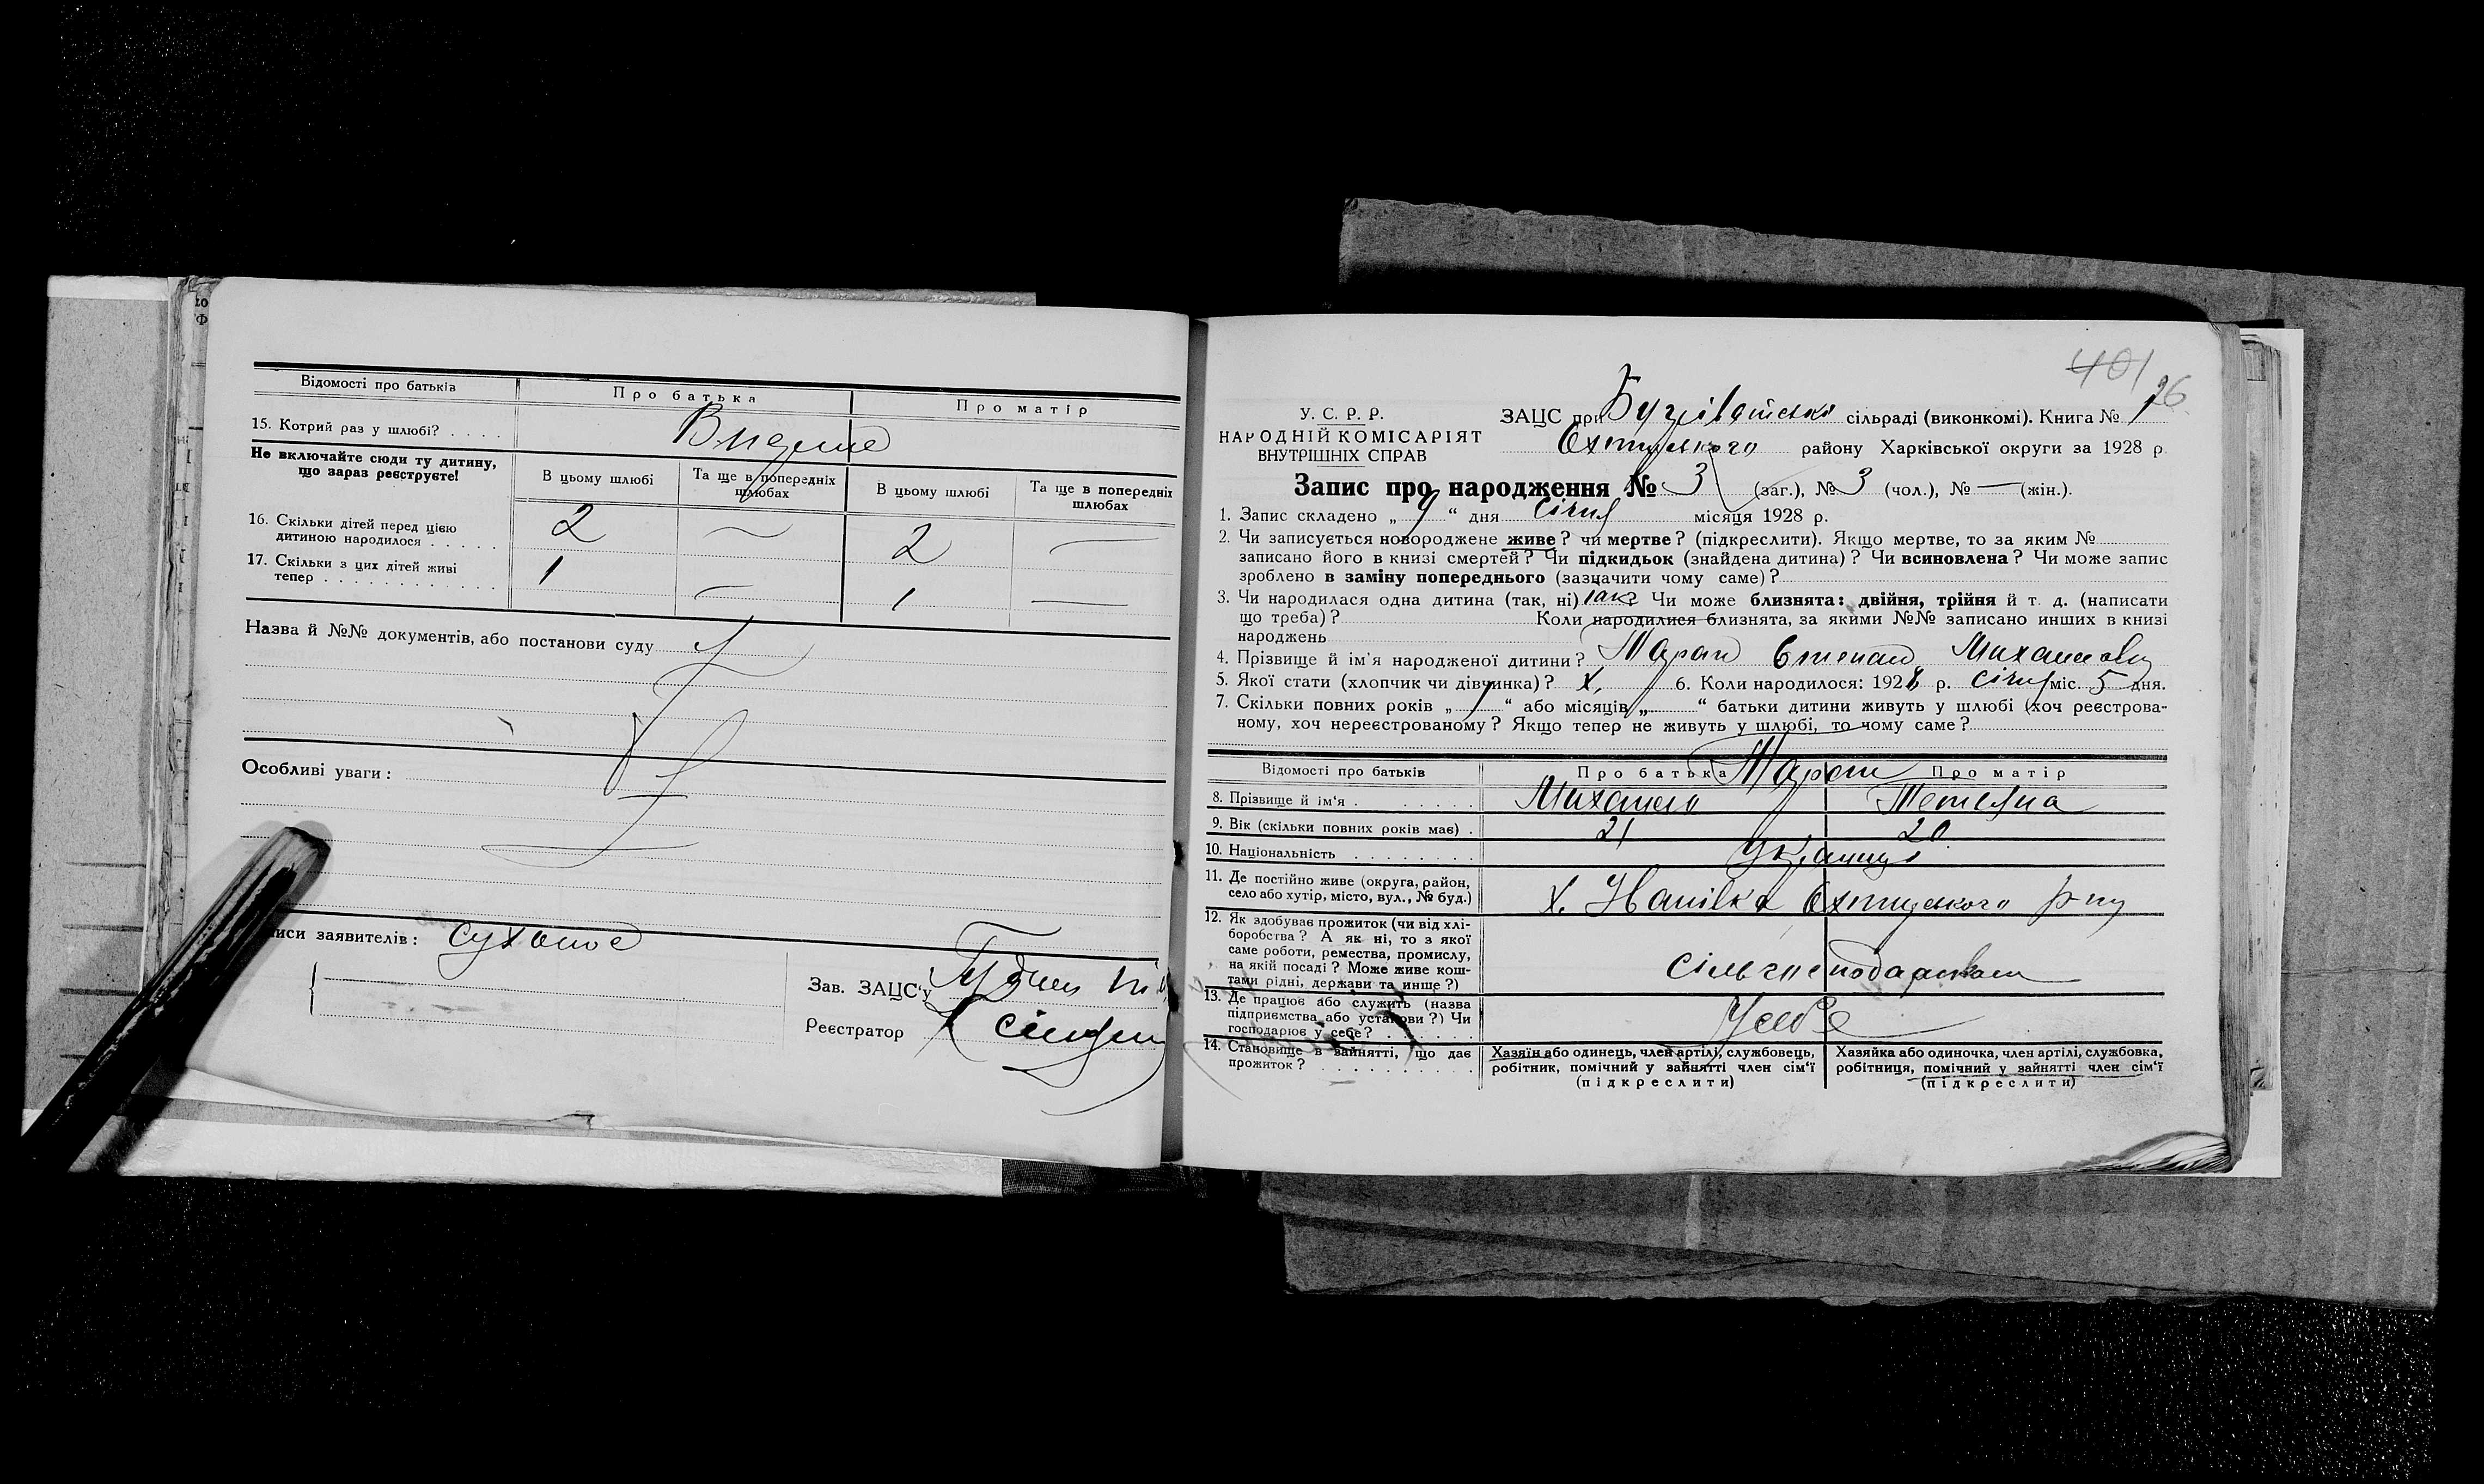 Відомості про батьків
Про батька
Про матір
15. Котрий раз у шлюбі? . . . .
Не включайте сюди ту дитину,
що зараз реєструєте!
В цьому шлюбі
Та ще в попередніх
шлюбах
В цьому шлюбі
Та ще в попередніх
шлюбах
16. Скільки дітей перед цією
дитиною народилося . . . . .
2
—
2
—
17. Скільки з цих дітей живі
тепер . . . . . . . . . . . .
1
—
1
—
Назва й №№ документів, або постанови суду
Особливі уваги:
иси заявителів:
Зав. ЗАЦС'у
Реєстратор
401
26
У. С. Р. Р.
НАРОДНІЙ КОМІСАРІЯТ
ВНУТРІШНІХ СПРАВ
ЗАЦС при сільраді (виконкомі). Книга № 1
району Харківської округи за 1928 р
Запис про народження № 3 (заг.), № 3 (чол.), № — (жін.).
1. Запис складено „ 9 “ дня січня місяця 1928 р.
2. Чи записується новороджене живе? чи мертве? (підкреслити). Якщо мертве, то за яким №
записано його в книзі смертей? Чи підкидьок (знайдена дитина)? Чи всиновлена? Чи може запис
зроблено в заміну попереднього (зазначити чому саме)?
3. Чи народилася одна дитина (так, ні) так Чи може близнята: двійня, трійня й т. д. (написати
що треба)? Коли народилися близнята, за якими №№ записано инших в книзі
народжень
4. Прізвище й ім'я народженої дитини? Таран Степан Михайлович
5. Якої стати (хлопчик чи дівчинка)? х. 6. Коли народилося: 1928 р. січня міс. 5 дня.
7. Скільки повних років „ “ або місяців „ “ батьки дитини живуть у шлюбі (хоч реєстрова-
ному, хоч нереєстрованому? Якщо тепер не живуть у шлюбі, то чому саме?
Відомості про батьків
Про батька
Таран
Про матір
8. Прізвище й ім'я . . . . . .
Михайло
Тетяна
9. Вік (скільки повних років має) .
21
20
10. Національність . . . . . . . .
Українці
11. Де постійно живе (округа, район,
село або хутір, місто, вул., № буд.)
12. Як здобуває прожиток (чи від хлі-
боробства? А як ні, то з якої
саме роботи, ремества, промислу,
на якій посаді? Може живе кош-
тами рідні, держави та инше?)
13. Де працює або служить (назва
підприємства або установи?) Чи
господарює у себе? . . . . . .
У себе
14. Становище в зайнятті, що дає
прожиток? . . . . . . . . . .
Хазяїн або одинець, член артілі, службовець,
робітник, помічний у зайнятті член сім'ї
(підкреслити)
Хазяйка або одиночка, член артілі, службовка,
робітниця, помічний у зайнятті член сім'ї
(підкреслити)